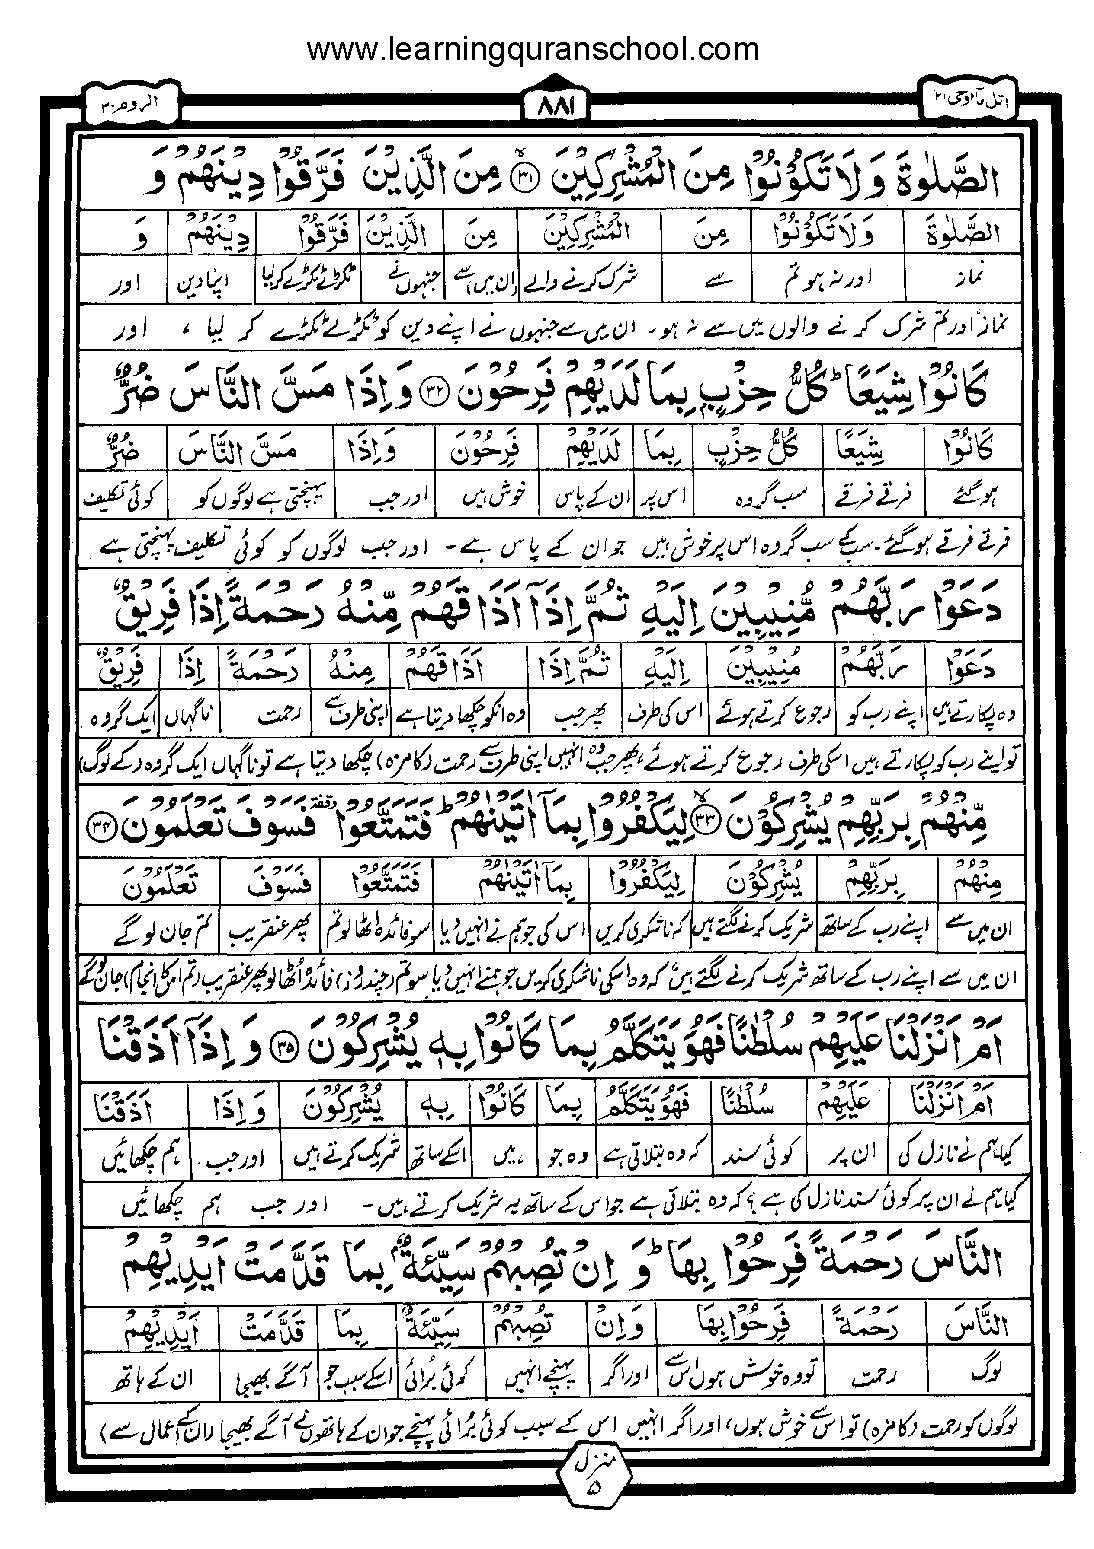 www.learningquranschool.com
اتل مآاوحی ۲۱ ۸۸۱ الروم ۳۰
الصَّلٰوةَ وَلَا تَكُوْنُوْا مِنَ الْمُشْرِكِيْنَ ﴿۳۱﴾ مِنَ الَّذِيْنَ فَرَّقُوْا دِيْنَهُمْ وَ
الصَّلٰوةَ وَلَا تَكُوْنُوْا مِنَ الْمُشْرِكِيْنَ مِنَ الَّذِيْنَ فَرَّقُوْا دِيْنَهُمْ وَ
نماز اور نہ ہو تم سے شرک کرنے والے ان میں سے جنہوں نے ٹکڑے ٹکڑے کر لیا اپنا دین اور
نماز اور تم شرک کرنے والوں میں سے نہ ہو۔ ان میں سے جنہوں نے اپنے دین کو ٹکڑے ٹکڑے کر لیا، اور
كَانُوْا شِيَعًا ؕ كُلُّ حِزْبٍۭ بِمَا لَدَيْهِمْ فَرِحُوْنَ ﴿۳۲﴾ وَاِذَا مَسَّ النَّاسَ ضُرٌّ
كَانُوْا شِيَعًا كُلُّ حِزْبٍ بِمَا لَدَيْهِمْ فَرِحُوْنَ وَاِذَا مَسَّ النَّاسَ ضُرٌّ
ہو گئے فرقے فرقے سب گروہ اس پر ان کے پاس خوش ہیں اور جب پہنچتی ہے لوگوں کو کوئی تکلیف
فرقے فرقے ہو گئے۔ سب کے سب گروہ اس پر خوش ہیں جو ان کے پاس ہے۔ اور جب لوگوں کو کوئی تکلیف پہنچتی ہے
دَعَوْا رَبَّهُمْ مُّنِيْبِيْنَ اِلَيْهِ ثُمَّ اِذَاۤ اَذَاقَهُمْ مِّنْهُ رَحْمَةً اِذَا فَرِيْقٌ
دَعَوْا رَبَّهُمْ مُّنِيْبِيْنَ اِلَيْهِ ثُمَّ اِذَا اَذَاقَهُمْ مِنْهُ رَحْمَةً اِذَا فَرِيْقٌ
وہ پکارتے ہیں اپنے رب کو رجوع کرتے ہوئے اس کی طرف پھر جب وہ انکو چکھا دیتا ہے اپنی طرف سے رحمت ناگہاں ایک گروہ
تو اپنے رب کو پکارتے ہیں اسکی طرف رجوع کرتے ہوئے، پھر جب وہ انہیں اپنی طرف سے رحمت (کا مزہ) چکھا دیتا ہے تو ناگہاں ایک گروہ (کے لوگ)
مِّنْهُمْ بِرَبِّهِمْ يُشْرِكُوْنَ ﴿۳۳﴾ لِيَكْفُرُوْا بِمَاۤ اٰتَيْنٰهُمْ ؕ فَتَمَتَّعُوْا وقفة فَسَوْفَ تَعْلَمُوْنَ ﴿۳۴﴾
مِنْهُمْ بِرَبِّهِمْ يُشْرِكُوْنَ لِيَكْفُرُوْا بِمَا اٰتَيْنٰهُمْ فَتَمَتَّعُوْا فَسَوْفَ تَعْلَمُوْنَ
ان میں سے اپنے رب کے ساتھ شریک کرنے لگتے ہیں کہ ناشکری کریں اس کی جو ہم نے انہیں دیا سو فائدہ اٹھا لو تم پھر عنقریب تم جان لو گے
ان میں سے اپنے رب کے ساتھ شریک کرنے لگتے ہیں کہ وہ اسکی ناشکری کریں جو ہم نے انہیں دیا، سو تم (چند روز) فائدہ اٹھا لو پھر عنقریب (تم اسکا انجام) جان لو گے
اَمْ اَنْزَلْنَا عَلَيْهِمْ سُلْطٰنًا فَهُوَ يَتَكَلَّمُ بِمَا كَانُوْا بِهٖ يُشْرِكُوْنَ ﴿۳۵﴾ وَ اِذَاۤ اَذَقْنَا
اَمْ اَنْزَلْنَا عَلَيْهِمْ سُلْطٰنًا فَهُوَ يَتَكَلَّمُ بِمَا كَانُوْا بِهٖ يُشْرِكُوْنَ وَ اِذَا اَذَقْنَا
کیا ہم نے نازل کی ان پر کوئی سند کہ وہ بتلاتی ہے وہ جو ہیں اسکے ساتھ شریک کرتے ہیں اور جب ہم چکھائیں
کیا ہم نے ان پر کوئی سند نازل کی ہے؟ کہ وہ بتلاتی ہے جو اس کے ساتھ یہ شریک کرتے ہیں۔ اور جب ہم چکھائیں
النَّاسَ رَحْمَةً فَرِحُوْا بِهَا ؕ وَ اِنْ تُصِبْهُمْ سَيِّئَةٌۢ بِمَا قَدَّمَتْ اَيْدِيْهِمْ
النَّاسَ رَحْمَةً فَرِحُوْا بِهَا وَ اِنْ تُصِبْهُمْ سَيِّئَةٌ بِمَا قَدَّمَتْ اَيْدِيْهِمْ
لوگ رحمت تو وہ خوش ہوں اس سے اور اگر پہنچے انہیں کوئی برائی اسکے سبب جو آگے بھیجا ان کے ہاتھ
لوگوں کو رحمت (کا مزہ) تو اس سے خوش ہوں، اور اگر انہیں اس کے سبب کوئی برائی پہنچے جو ان کے ہاتھوں نے آگے بھیجا (ان کے اعمال سے)
منزل
۵